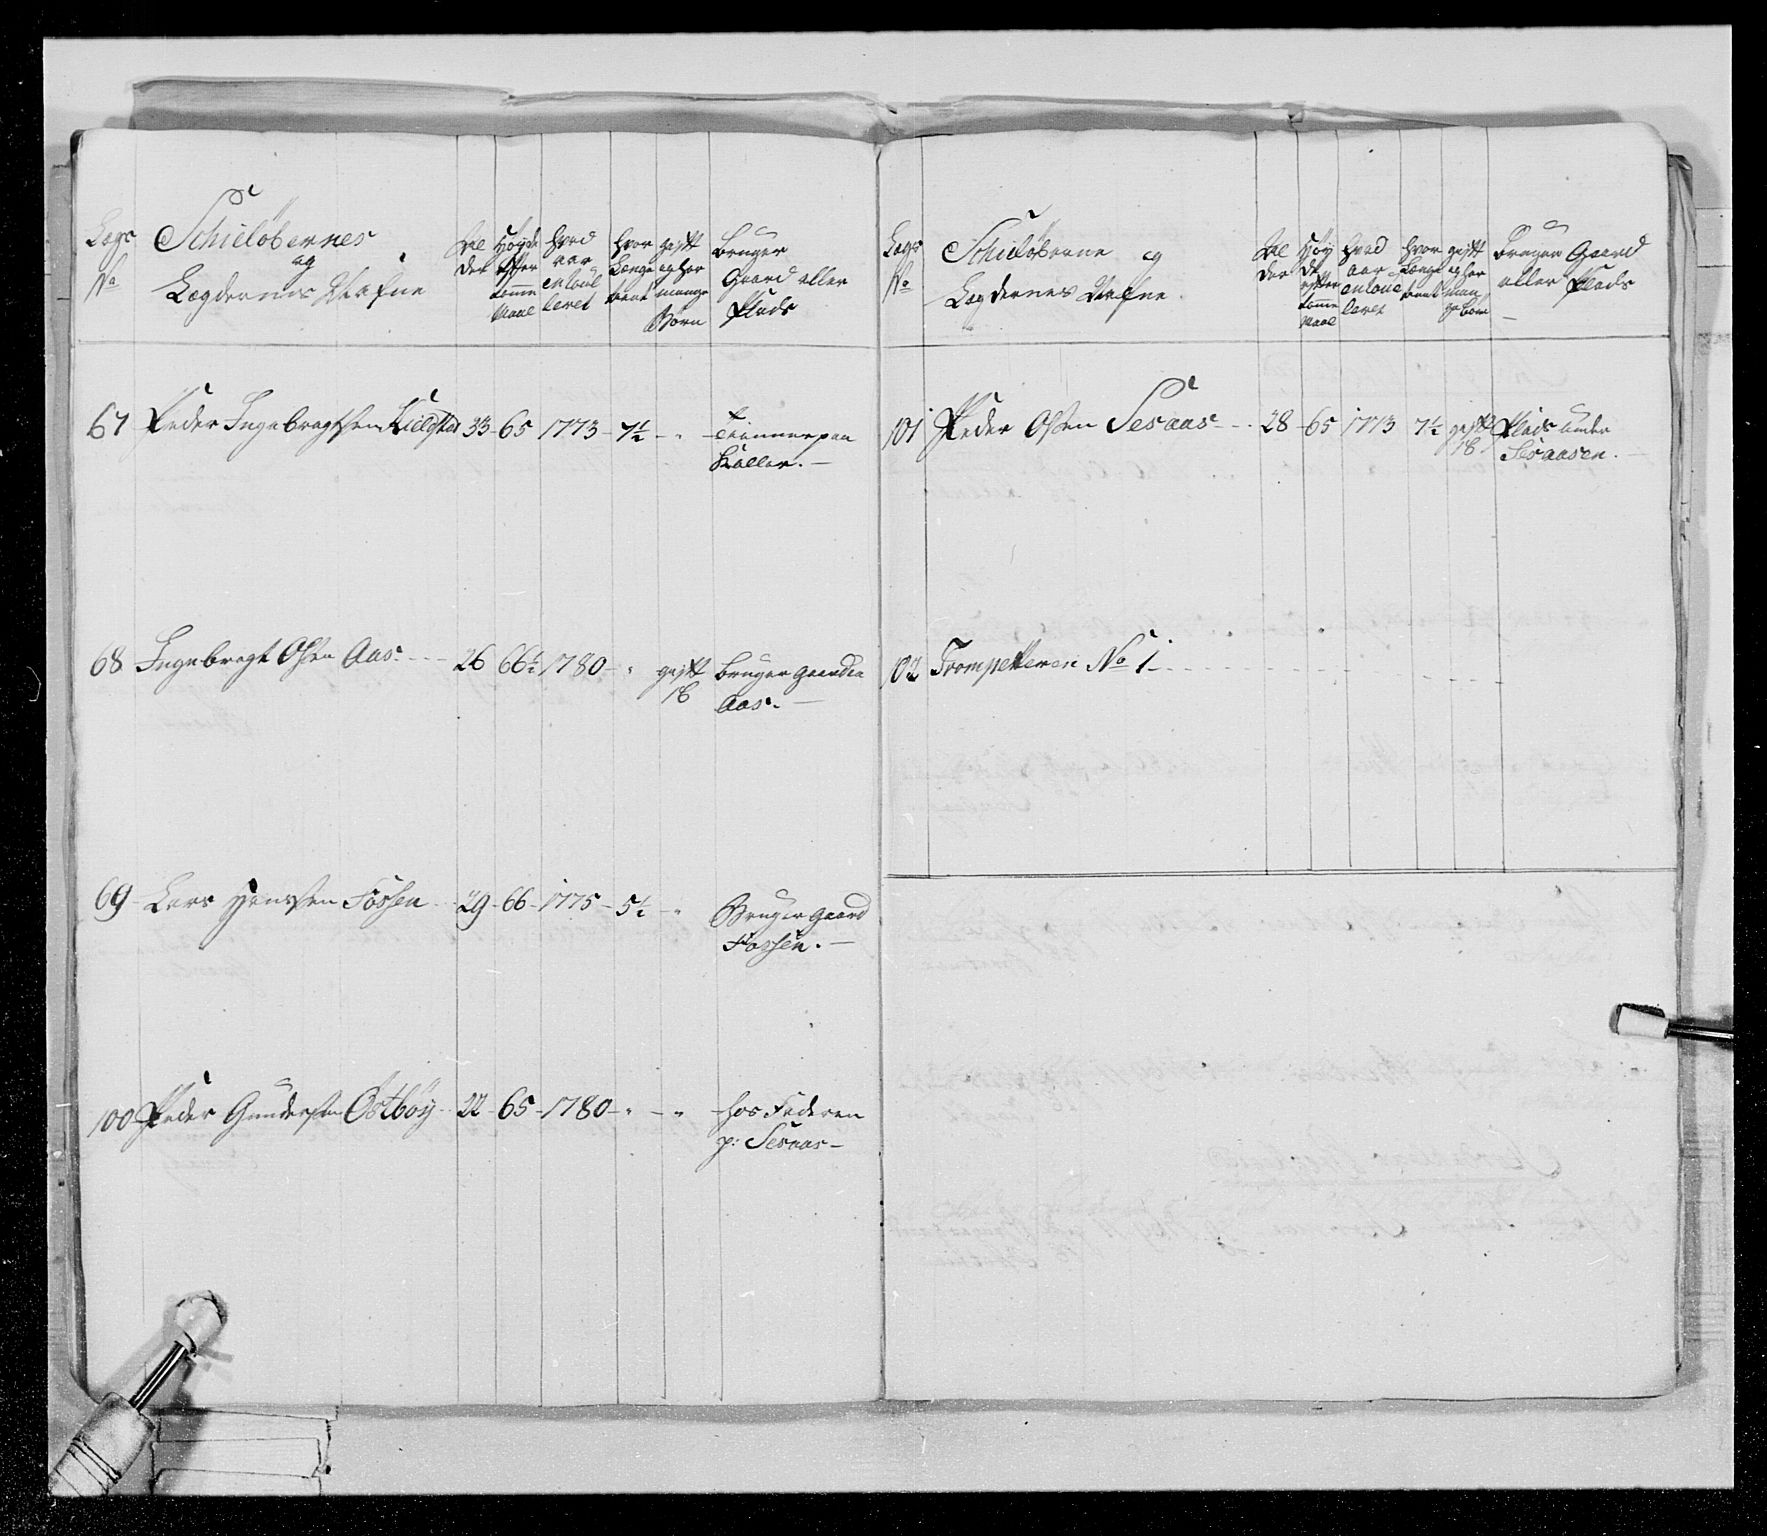 Lægs
No
Schieløbernes
og
Lægdernes Nafne
Al
der
Høyde
efter
tomme
Maal
hvad
aar
enroul
leret
hvor
længe
tient
gift
og hor
mange
Børn
bruger
Gaard eller
Plads
67 Peder Ingebregtsen Kieldstad 33 - 65 - 1773 - 7½ - " - Tienner paa
Koller. -
68 Ingebregt Olsen Aas - - - 26 66½ 1780 - " gift bruger gaarden
1B Aas. -
69 Lars Jensen Fossen - 29 - 66 - 1775 - 5½ - " Bruger gaard
Fossen. -
100 Peder Gundersen Østbøy - 22 - 65 - 1780 - " - " - hos Faderen
p: Sesaas -
Lægs
No
Schieløberne og
Lægdernes Nafne
Al
der
Høy
de
efter
tomme
Maal
hvad
aar
enroul
leret
hvor
længe
tient
gift
og hor
man
ge Børn
Bruger Gaard
eller Plads
101 Peder Olsen Sesaas - - 28 - 65 - 1773 7½ gift Plads under
1B Sesaasen.
102 Trompetteren No 1 - - - - - - - - -